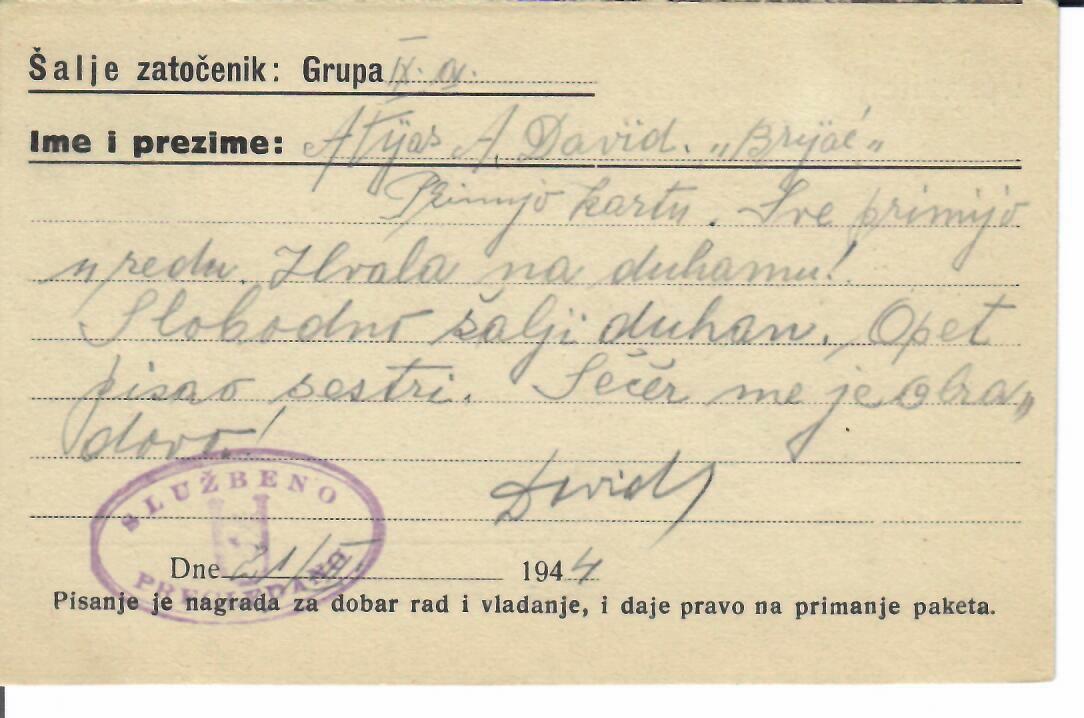 Šalje zatočenik: Grupa IX. a.
Ime i prezime: Atijas A. David. „Brijač"
Primijo kartu. Sve primijo
u redu. Hvala na duhanu!
Slobodno šalji duhan. Opet
pisao sestri. Šećer me je obra„
dovo!
David
SLUŽBENO
PREGLEDANO
Dne 21/ 1944
Pisanje je nagrada za dobar rad i vladanje, i daje pravo na primanje paketa.